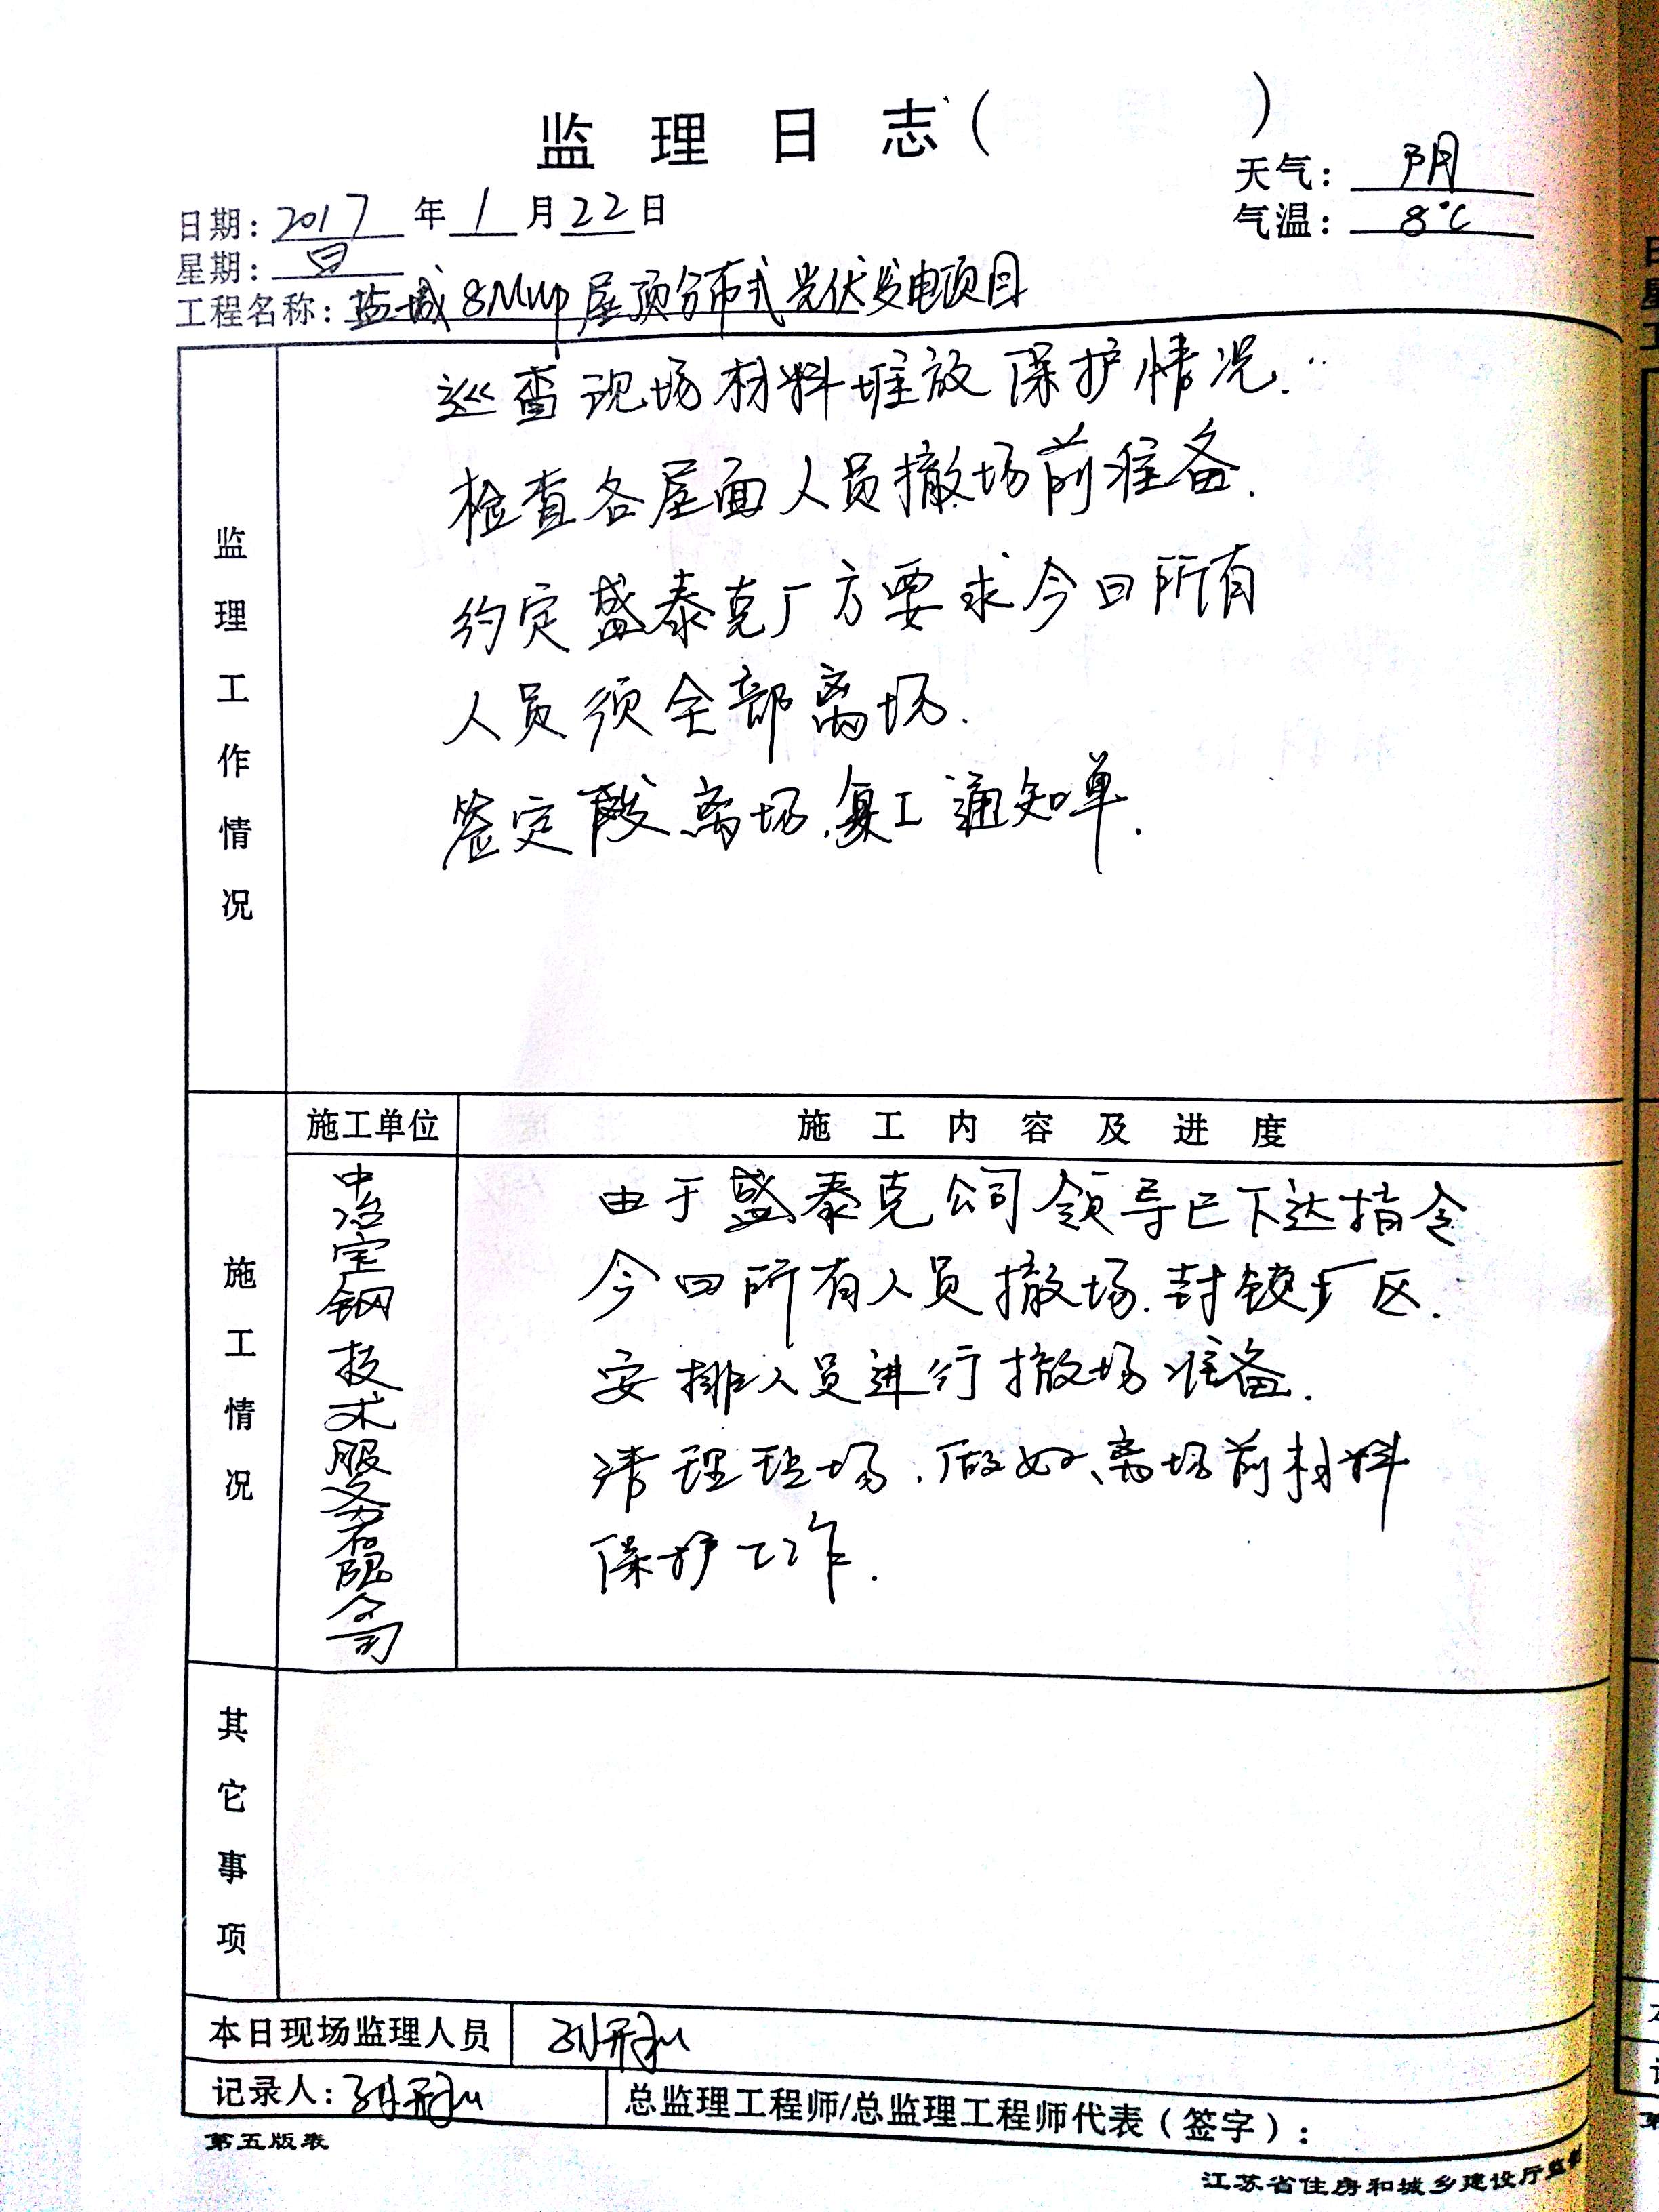 监理日志（ ）
天气：阴
日期：2017年1月22日
气温：8℃
星期：日
工程名称：盐城8MWp屋顶分布式光伏发电项目
监理工作情况
巡查现场材料堆放保护情况.
检查各屋面人员撤场前准备.
约定盛泰克厂方要求今日所有
人员须全部离场.
签定 离场.复工通知单.
施工单位
施工内容及进度
施工情况
中冶宝钢技术服务有限公司
由于盛泰克公司领导已下达指令
今日所有人员撤场.封锁厂区.
安排人员进行撤场准备.
清理现场.做好离场前材料
保护工作.
其它事项
本日现场监理人员
记录人：
总监理工程师/总监理工程师代表（签字）：
第五版表
江苏省住房和城乡建设厅监